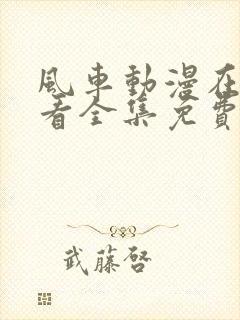 風車動漫在
看全集免費
武藤啓